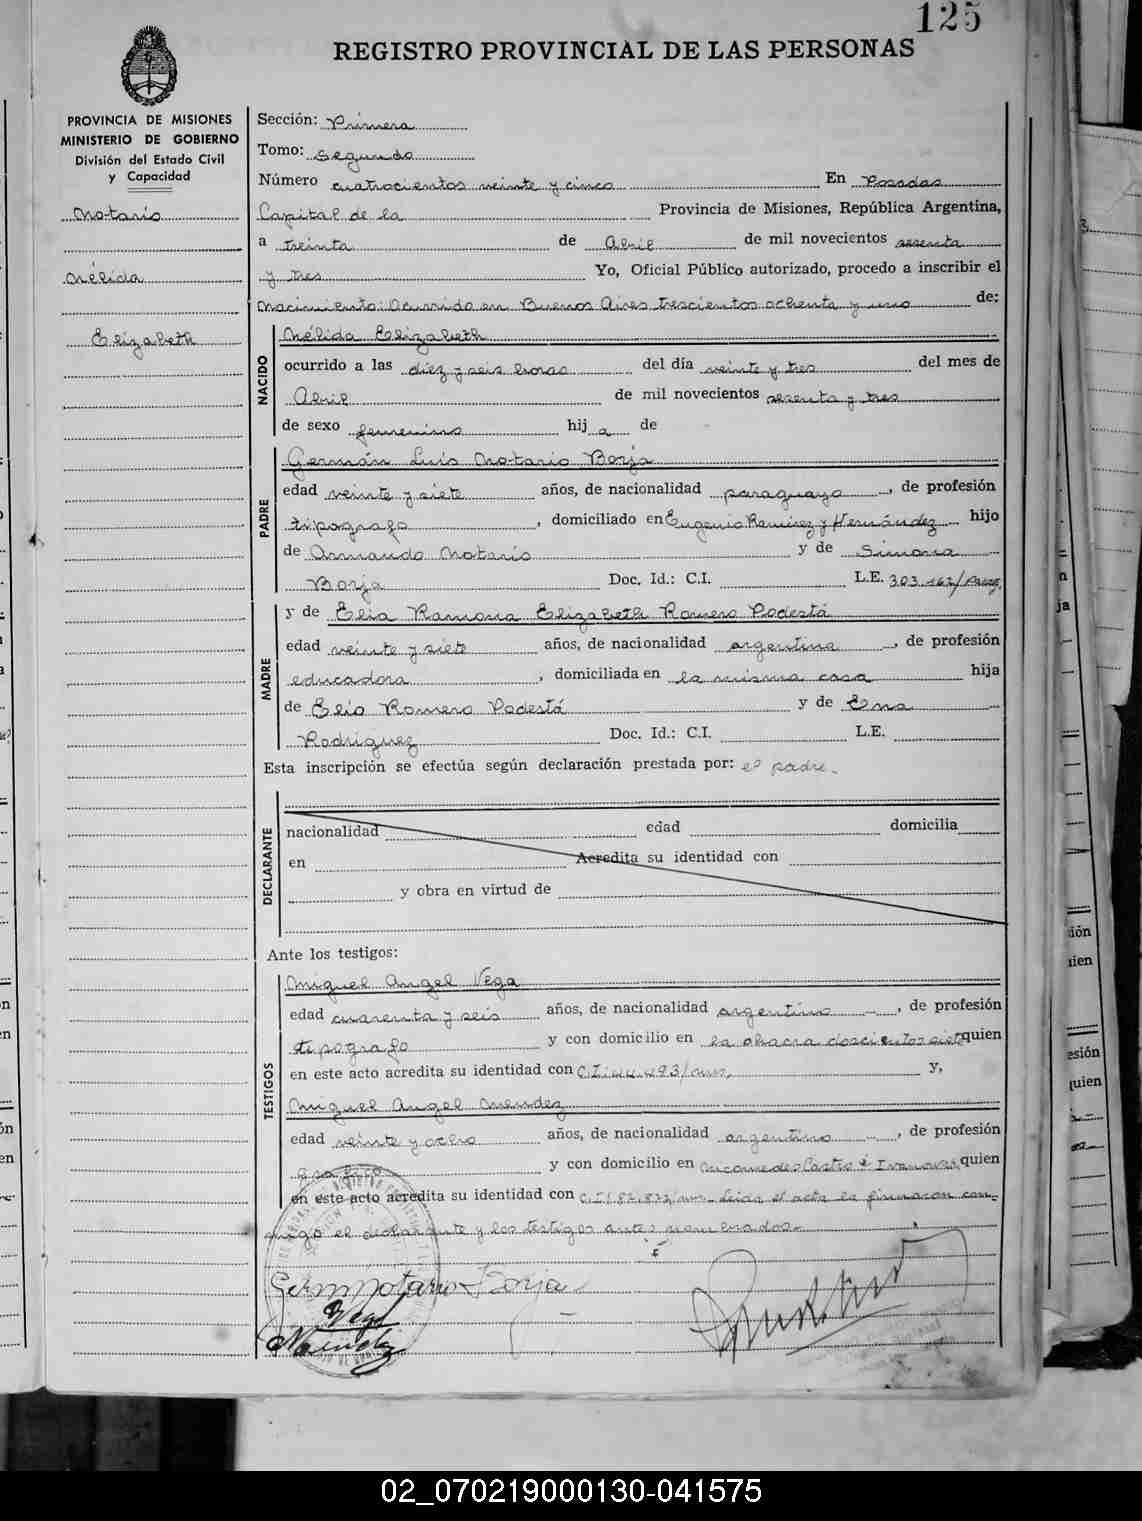 125
REGISTRO PROVINCIAL DE LAS PERSONAS
PROVINCIA DE MISIONES
MINISTERIO DE GOBIERNO
División del Estado Civil
y Capacidad
Notario
Nélida
Elizabeth
Sección: Primera
Tomo: Segundo
Número cuatrocientos veinte y cinco En Posadas
Capital de la Provincia de Misiones, República Argentina,
a treinta de Abril de mil novecientos sesenta
y tres Yo, Oficial Público autorizado, procedo a inscribir el
nacimiento: Ocurrido en Buenos Aires trescientos ochenta y uno de:
NACIDO
Nélida Elizabeth
ocurrido a las diez y seis horas del día veinte y tres del mes de
Abril de mil novecientos sesenta y tres
de sexo femenino hij a de
PADRE
Germán Luis Notario Borja
edad veinte y siete años, de nacionalidad paraguayo, de profesión
tipografo, domiciliado en Eugenio Ramirez y Hernández hijo
de Armando Notario y de Simona
Borja Doc. Id.: C.I. L.E. 303.162/Parag.
MADRE
y de Elia Ramona Elizabeth Romero Podestá
edad veinte y siete años, de nacionalidad argentina, de profesión
educadora, domiciliada en la misma casa hija
de Elio Romero Podestá y de Ena
Rodriguez Doc. Id.: C.I. L.E.
Esta inscripción se efectúa según declaración prestada por: el padre.
DECLARANTE
nacionalidad edad domicilia
en Acredita su identidad con
y obra en virtud de
Ante los testigos:
TESTIGOS
Miguel Angel Vega
edad cuarenta y seis años, de nacionalidad argentino, de profesión
tipografo y con domicilio en la chacra doscientos siete quien
en este acto acredita su identidad con C.I. y,
Miguel Angel Mendez
edad veinte y ocho años, de nacionalidad argentino, de profesión
y con domicilio en Nicomedes Castro é quien
en este acto acredita su identidad con Leida el acta la firmaron con-
migo el declarante y los testigos antes nombrados.-
Germ Notario Borja
Vega
Mendez
02_070219000130-041575